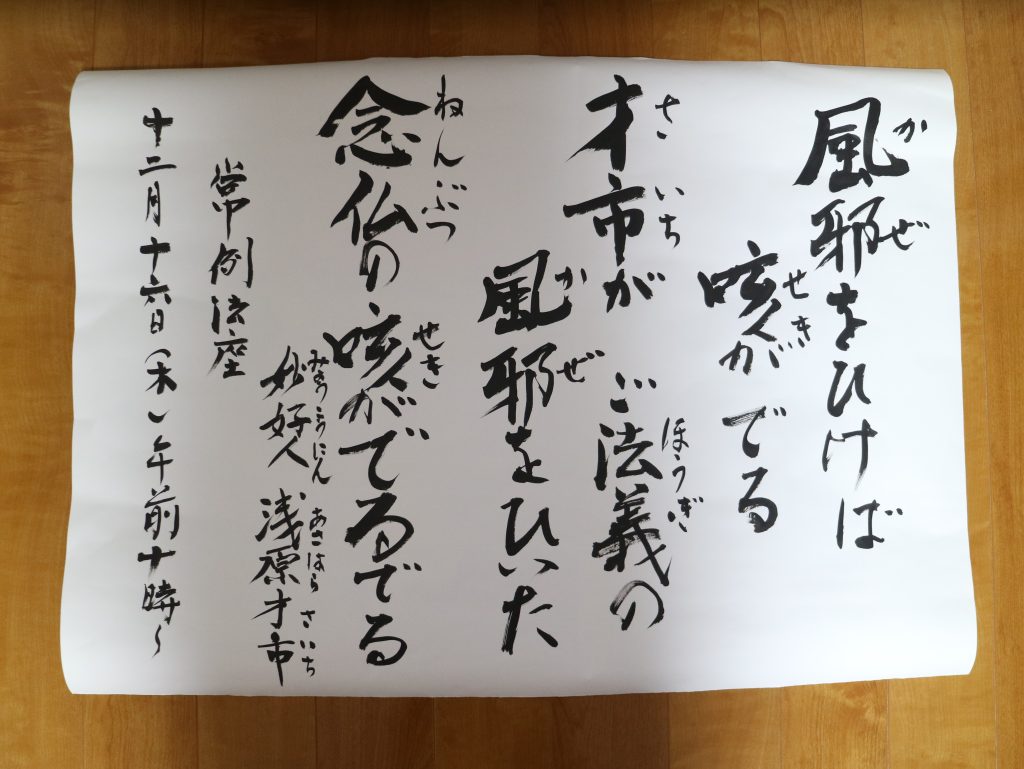 風邪をひけば
かぜ
咳がでる
せき
才市がご法義の
さいち ほうぎ
風邪をひいた
かぜ
念仏の咳がでるでる
ねんぶつ せき
妙好人 浅原才市
みょうこうにん あさはら さいち
常例法座
十二月十六日(木)午前十時〜